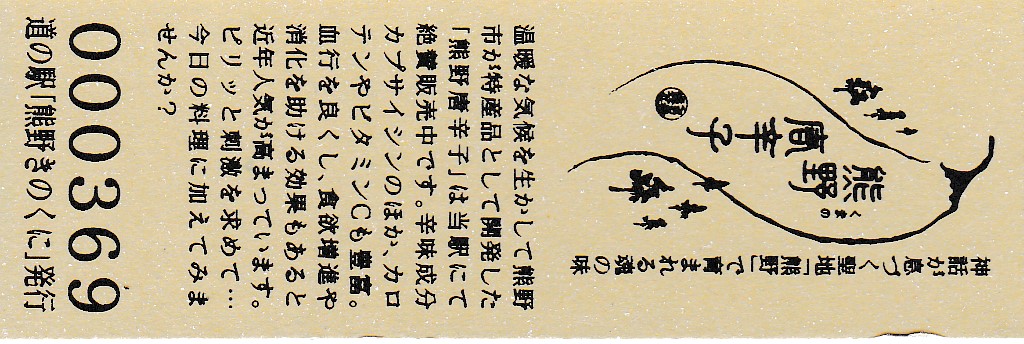 くまの
熊野
唐辛子
神話が息づく聖地「熊野」で育まれる の味
温暖な気候を生かして熊野
市が特産品として開発した
「熊野唐辛子」は当駅にて
絶賛販売中です。辛味成分
カプサイシンのほか、カロ
テンやビタミンCも豊富。
血行を良くし、食欲増進や
消化を助ける効果もあると
近年人気が高まっています。
ピリッと刺激を求めて…
今日の料理に加えてみま
せんか？
000369
道の駅「熊野きのくに」発行